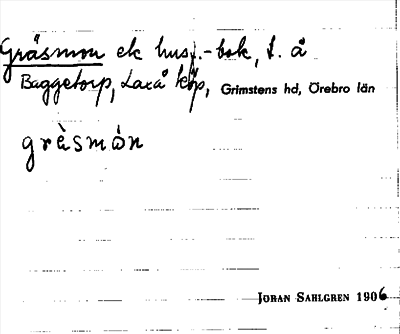 Gräsmon ek husf.-bok, t. å
Baggetorp, Laxå köp, Grimstens hd, Örebro län
grὲsmón
JÖRAN SAHLGREN 1906